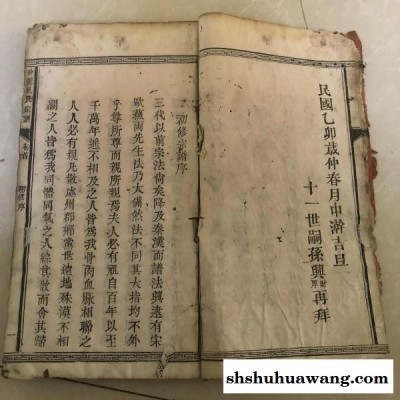 民國乙卯歲仲春月中澣吉旦
十一世嗣孫興財厚再拜
初修宗譜序
三代以前宗法倘矣降及秦漢而譜法興遠有宋
歐蘇兩先生法乃大備然法不同其大指均不外
乎尊所尊而視所視焉夫人必有祖自百年以至
千萬年邈不相及之人皆爲我骨肉血脈相聯之
人人必有視凡散處州郡鄉黨世遠地殊漠不相
關之人皆爲我同體同氣之人綜其散而合其
shshuhuawang.com